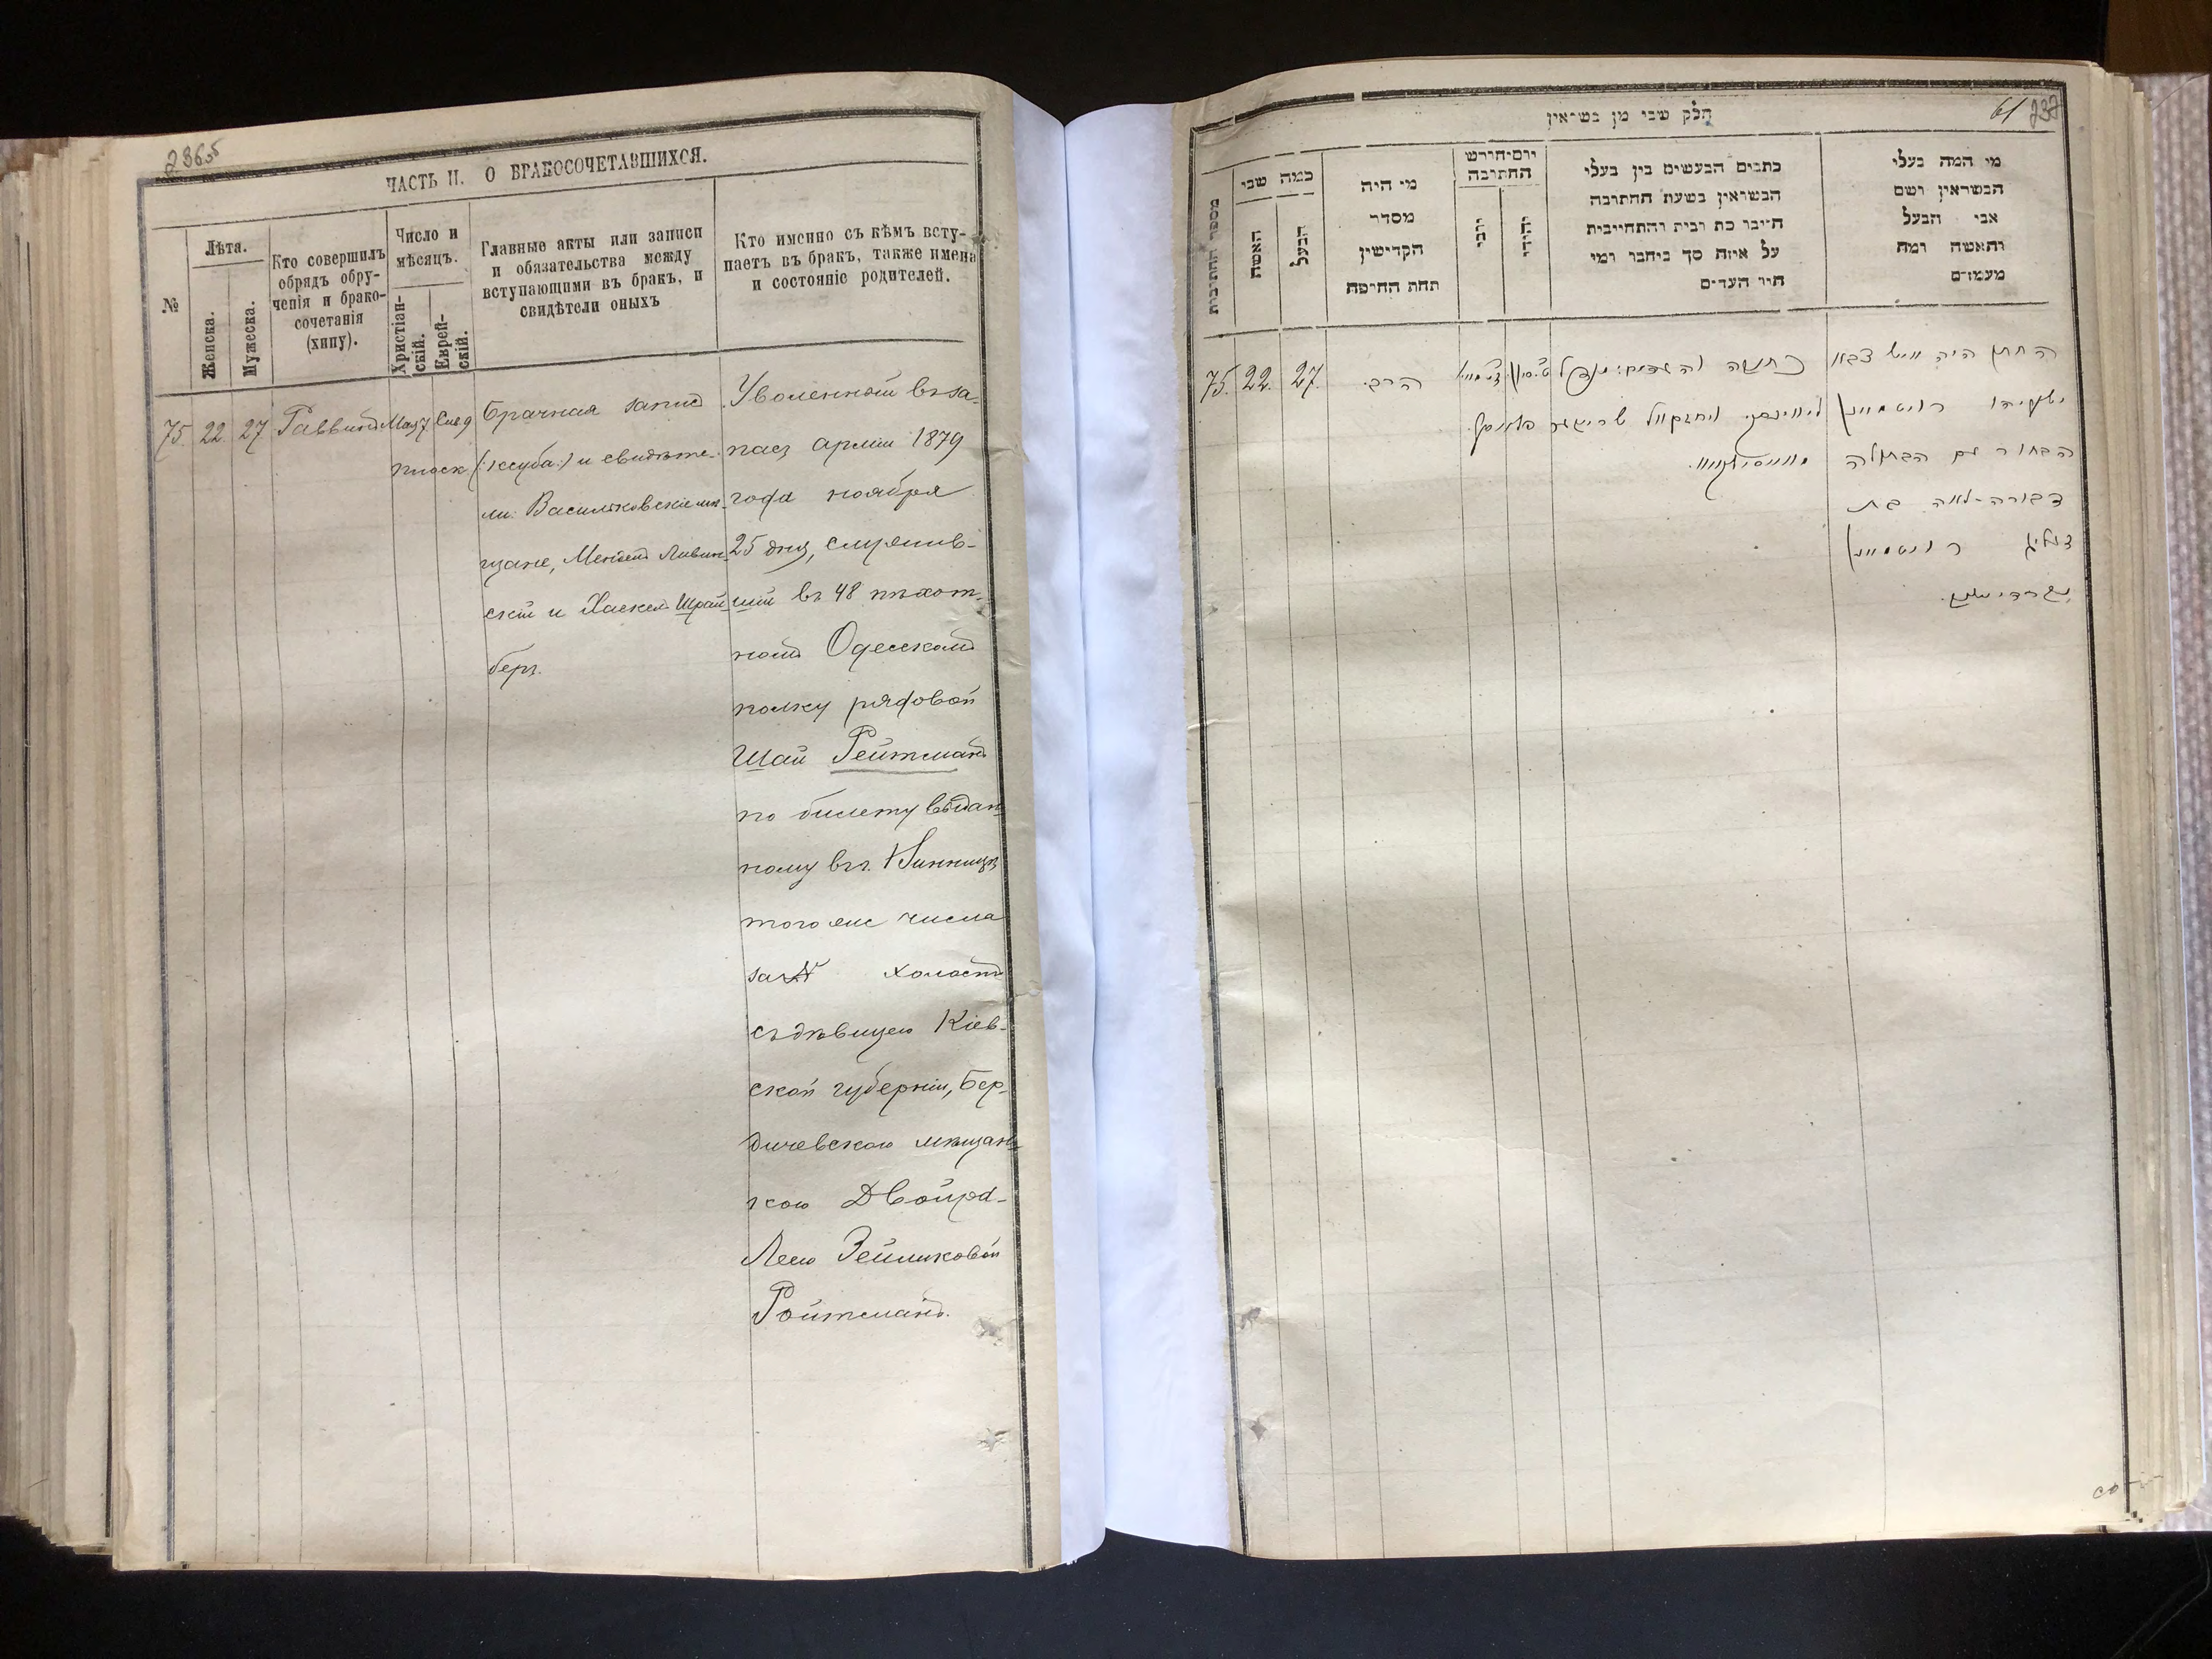 236об
ЧАСТЬ II. О БРАКОСОЧЕТАВШИХСЯ.
№
Лѣта.
Женска.
Мужеска.
Кто совершилъ
обрядъ обру-
ченія и брако-
сочетанія
(хипу).
Число и
мѣсяцъ.
Христіан-
скій.
Еврей-
скій.
Главные акты или записи
и обязательства между
вступающими въ бракъ, и
свидѣтели оныхъ
Кто именно съ кѣмъ всту-
паетъ въ бракъ, также имена
и состояніе родителей.
75. 22. 27 Раввинъ
Брачная запись
(:ксуба:) и свидѣте-
ли: Васильковскіе мѣ-
щане, Мендель Ливин-
скій и Хаскель Шрай
беръ.
Уволенный въ за-
пасъ арміи 1879
года ноября
25 дня, служив-
шій въ 48 пѣхот-
номъ Одесскомъ
полку рядовой
Шая Рейтманъ
по билету выдан-
ному въ г. Винницѣ
того же числа
за № холостъ
съ дѣвицею Кіев-
ской губерніи, Бер-
дичевскою мѣщан-
кою Двойра-
Леею Зейликовой
Ройтманъ.
61 237
חלק שני מן נשואין
מספר החתונות
כמה שני
האשה
הבעל
מי היה
מסדר
הקדושין
תחת החופה
יום וחודש
החתונה
נוצרי
יהודי
כתבים הנעשים בין בעלי
הנשואין בשעת החתונה
היינו כת ובית והתחייבות
על איזה סך ביחבר ומי
היו העדים
מי המה בעלי
הנשואין ושם
אבי הבעל
והאשה ומה
מעמדם
75. 22. 27. הרב.
כתובה והעדים: מענדל
ליווינסקי ויחזקאל שרייבער
החתן היה איש צבא
ישעיהו רויטמאן
הבחור עם הבתולה
דבורה-לאה בת
זעליג רויטמאן